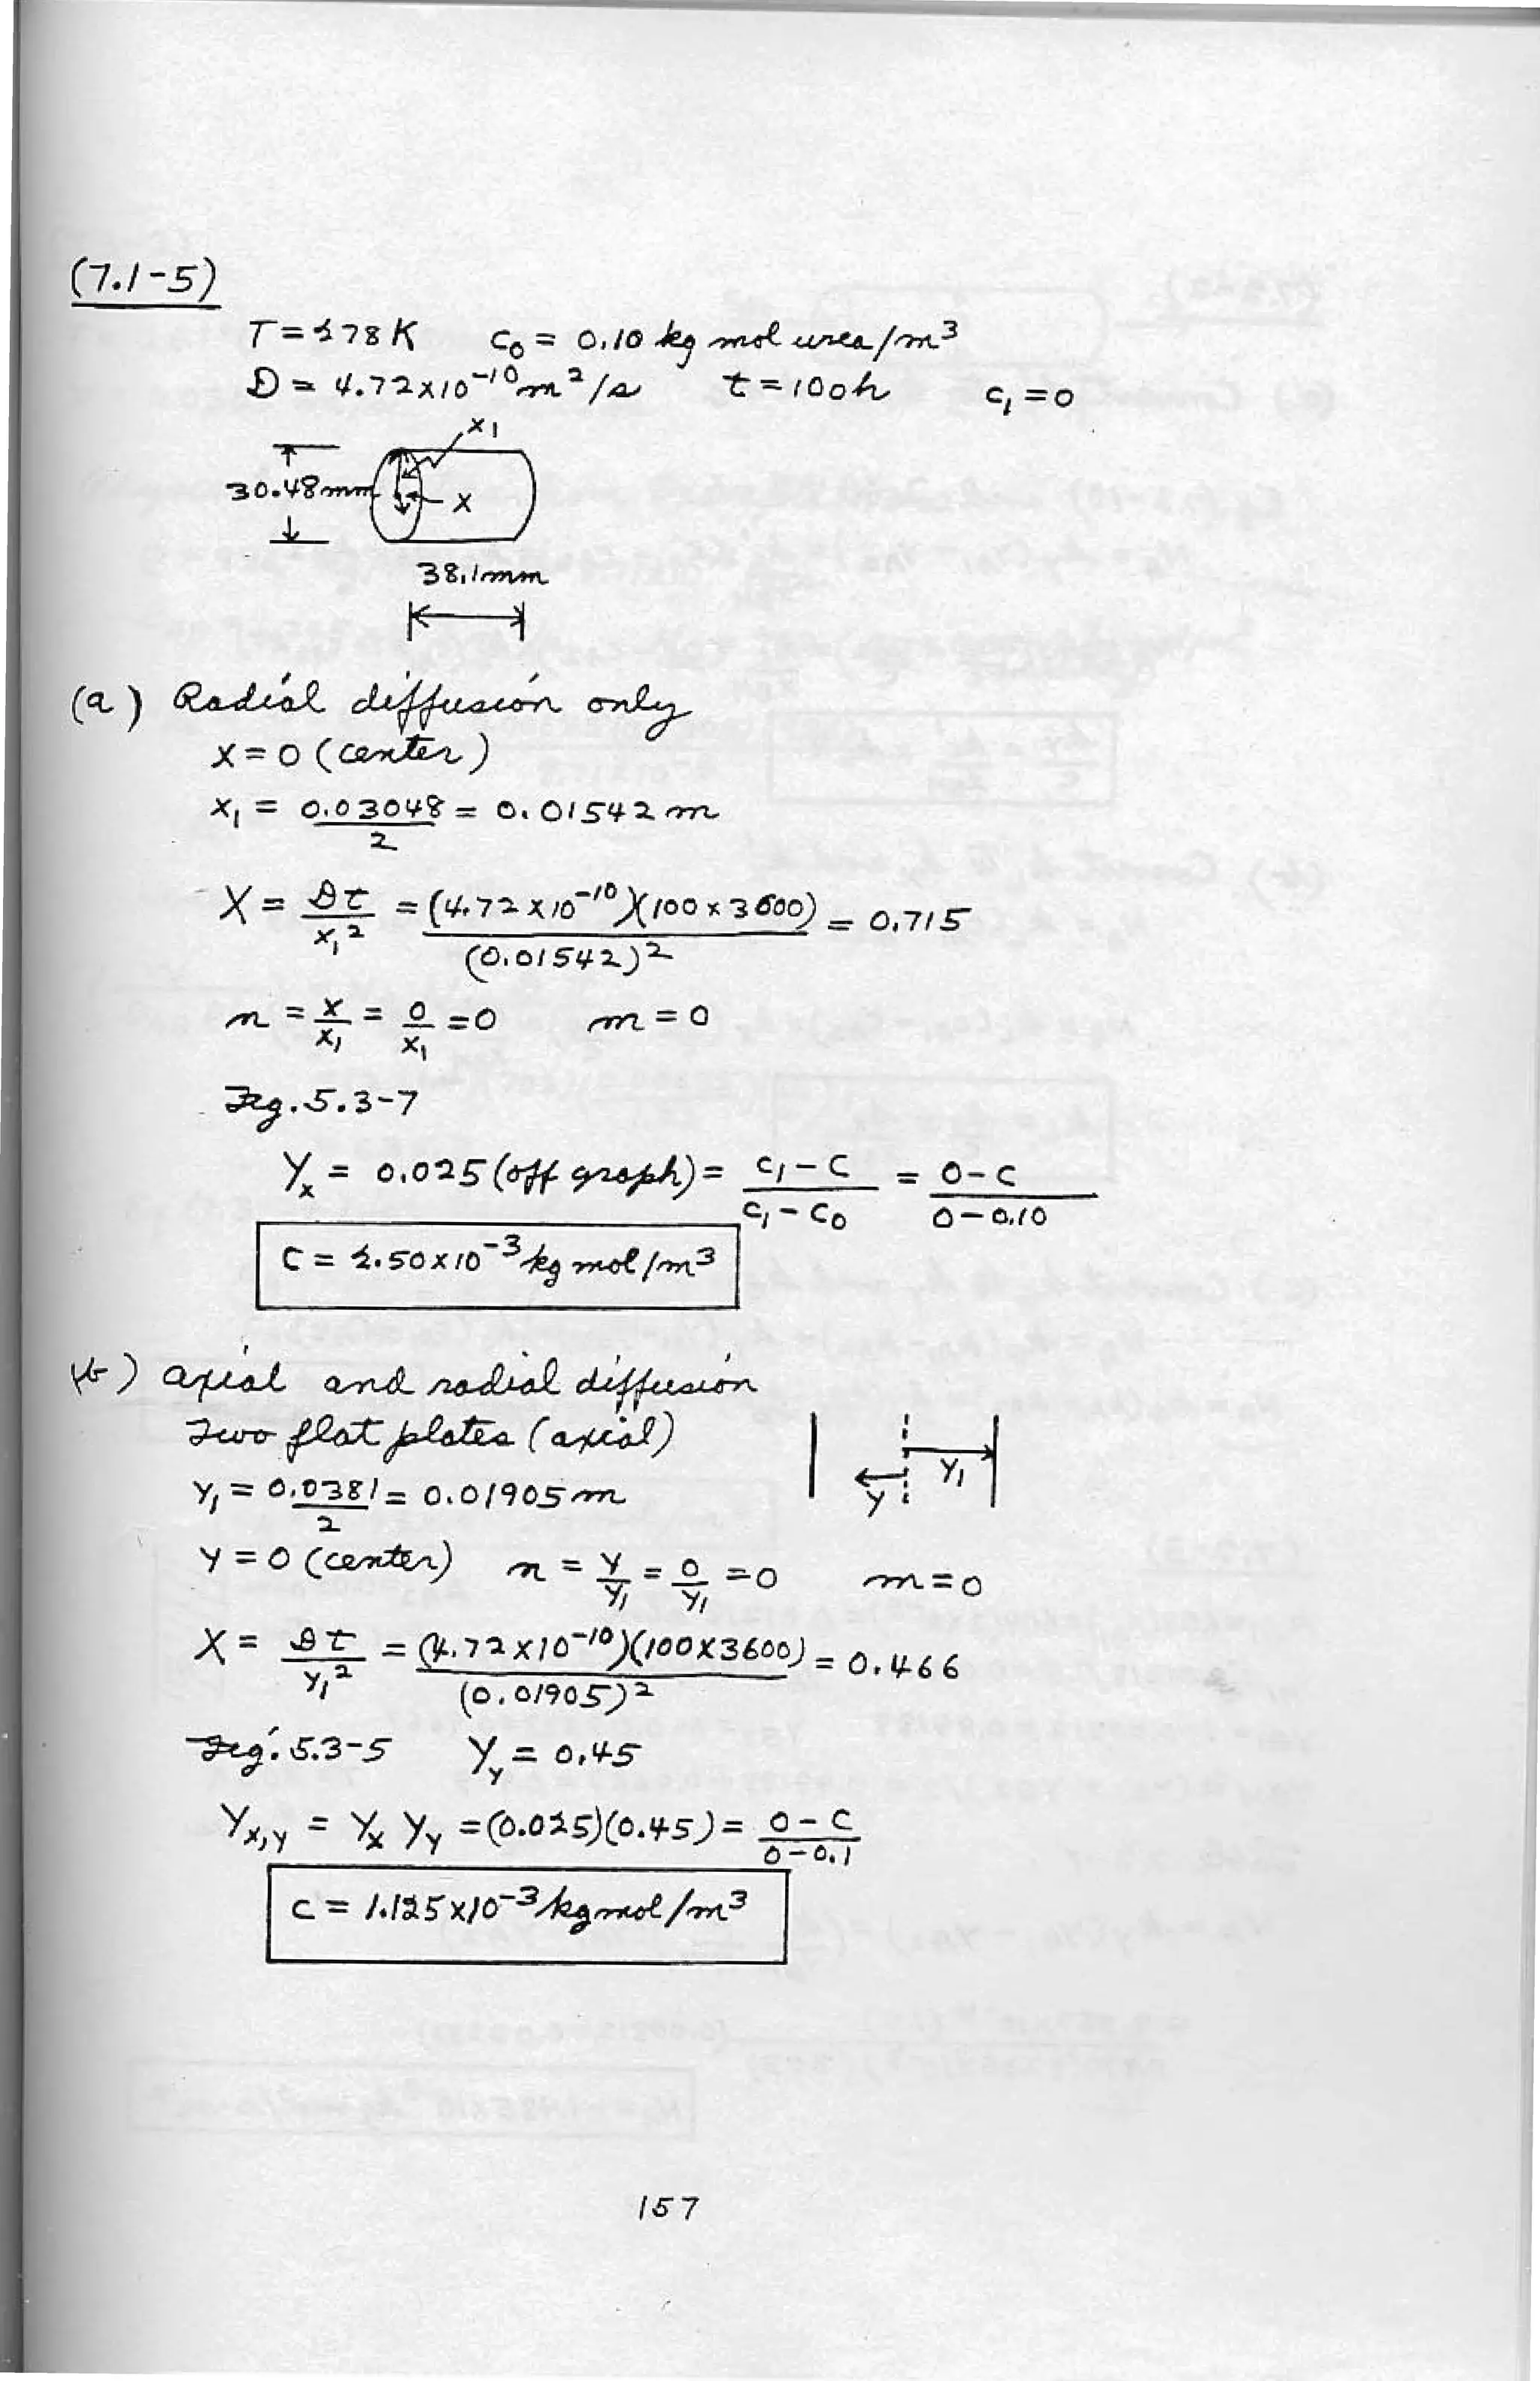 (7.1-5)
T = 278 K    c₀ = 0.10 kg mol urea/m³
D = 4.72x10⁻¹⁰ m²/s    t = 100h    c₁ = 0
x₁
30.48mm
x
38.1mm
(a) Radial diffusion only
x = 0 (center)
x₁ = 0.03048/2 = 0.01542 m
X = Dt/x₁² = (4.72 x 10⁻¹⁰)(100 x 3600)/(0.01542)² = 0.715
n = x/x₁ = 0/x₁ = 0    m = 0
Fig. 5.3-7
Yₓ = 0.025 (off graph) = (c₁ - c)/(c₁ - c₀) = (0 - c)/(0 - 0.10)
c = 2.50 x 10⁻³ kg mol/m³
(b) axial and radial diffusion
Two flat plates (axial)
y₁
y
y₁ = 0.0381/2 = 0.01905 m
y = 0 (center)    n = y/y₁ = 0/y₁ = 0    m = 0
X = Dt/y₁² = (4.72 x 10⁻¹⁰)(100 x 3600)/(0.01905)² = 0.466
Fig. 5.3-5    Y_y = 0.45
Y_x,y = Y_x Y_y = (0.025)(0.45) = (0 - c)/(0 - 0.1)
c = 1.125 x 10⁻³ kg mol/m³
157